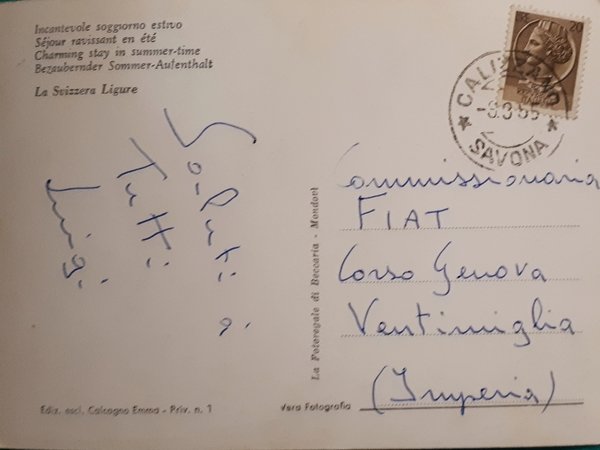 Incantevole soggiorno estivo
Séjour ravissant en été
Charming stay in summer-time
Bezaubernder Sommer-Aufenthalt
La Svizzera Ligure
Saluti a
Tutti
Luigi
La Fotoregale di Beccaria - Mondovì
20
CALIZZANO
SAVONA
Commissionaria
FIAT
Corso Genova
Ventimiglia
(Imperia)
Ediz. escl. Calcagno Emma - Priv. n. 1
Vera Fotografia